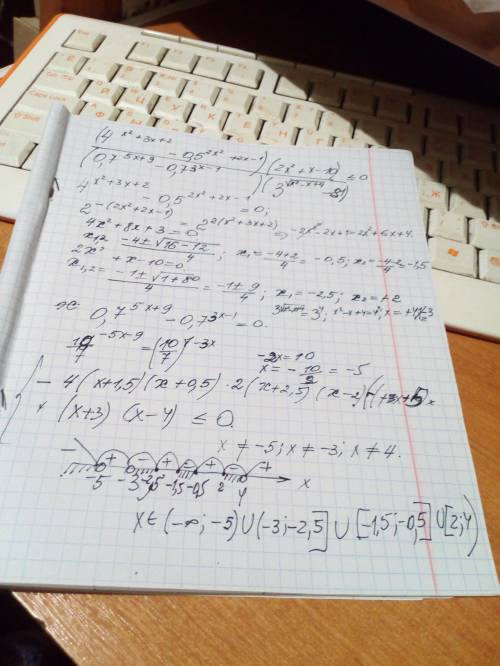 (4^(x²+3x+2) - 0,5^(2x²+2x-1))(2x²+x-10)
(0,7^(5x+9) - 0,7^(3x-1))(3^√(x²-x+4) - 81) ≤ 0
4^(x²+3x+2) - 0,5^(2x²+2x-1) = 0;
2^-(2x²+2x-1) = 2^(2(x²+3x+2)) => -2x²-2x+1=2x²+6x+4.
4x²+8x+3=0
x1,2 = (-4±√(16-12))/4; x₁ = (-4+2)/4 = -0,5; x₂ = (-4-2)/4 = -1,5
2x²+x-10=0
x1,2 = (-1±√(1+80))/4 = (-1±9)/4; x₁=-2,5; x₂=+2
0,7^(5x+9) - 0,7^(3x-1) = 0.
-2x=10
x = -10/2 = -5
- 4(x+1,5)(x+0,5)·2(x+2,5)(x-2)
× (x+3)(x-4) ≤ 0.
x ≠ -5; x ≠ -3; x ≠ 4.
- + - + - + - +
-5 -3 -2,5 -1,5 -0,5 2 4 x
x∈(-∞;-5)∪(-3;-2,5]∪[-1,5;-0,5]∪[2;4)
Caps Lock
Shift